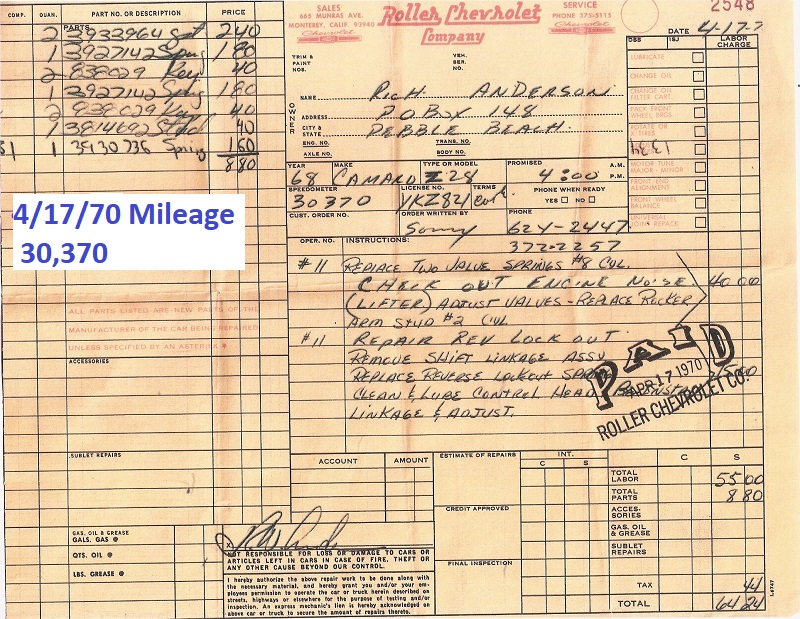 COMP. QUAN. PART NO. OR DESCRIPTION PRICE
PARTS
2 3933964 2 40
1 3927142 Spng 1 80
2 838029 Key 40
1 3927142 Spng 1 80
2 838029 Key 40
1 3814692 Stud 40
1 3930736 Spring 1 60
8 80
4/17/70 Mileage
30,370
ALL PARTS LISTED ARE NEW PARTS OF THE
MANUFACTURER OF THE CAR BEING REPAIRED
UNLESS SPECIFIED BY AN ASTERISK *
ACCESSORIES
SUBLET REPAIRS
GAS, OIL & GREASE
GALS. GAS @
QTS. OIL @
LBS. GREASE @
SALES
665 MUNRAS AVE.
MONTEREY, CALIF. 93940
Chevrolet
Roller Chevrolet
Company
SERVICE
PHONE 375-5115
Chevrolet
2548
DATE 4-17-7
TRIM & PAINT NOS.
VEH. SER. NO.
OWNER
NAME RICH ANDERSON
ADDRESS P O BOX 148
CITY & STATE PEBBLE BEACH.
ENG. NO. TRANS. NO.
AXLE NO. BODY NO.
YEAR MAKE TYPE OR MODEL PROMISED A.M. P.M.
68 CAMARO Z-28 4:00
SPEEDOMETER LICENSE NO. TERMS PHONE WHEN READY
30370 YKZ821 cash YES NO
CUST. ORDER NO. ORDER WRITTEN BY PHONE
Sonny 624-2447
372-2257
OPER. NO. INSTRUCTIONS:
#11 REPLACE TWO VALVE SPRINGS #8 CYL.
CHECK OUT ENGINE NOISE. 40 00
(LIFTER) ADJUST VALVES - REPLACE ROCKER
ARM STUD #2 CYL
#11 REPAIR REV LOCK OUT.
REMOVE SHIFT LINKAGE ASSY
REPLACE REVERSE LOCKOUT SPRING 15 00
CLEAN & LUBE CONTROL HEAD REINSTALL
LINKAGE & ADJUST.
PAID
APR 17 1970
ROLLER CHEVROLET CO.
DSS ISJ LABOR CHARGE
LUBRICATE
CHANGE OIL
CHANGE OIL FILTER CART
PACK FRONT WHEEL BRGS.
ROTATE OR X TIRES
1334
MOTOR TUNE MAJOR - MINOR
FRONT END ALIGNMENT
FRONT WHEEL BALANCE
UNIVERSAL JOINT REPACK
ACCOUNT AMOUNT
ESTIMATE OF REPAIRS
INT.
C S
C S
CREDIT APPROVED
FINAL INSPECTION
TOTAL LABOR 55 00
TOTAL PARTS 8 80
ACCESSORIES
GAS, OIL & GREASE
SUBLET REPAIRS
TAX 44
TOTAL 64 24
X
NOT RESPONSIBLE FOR LOSS OR DAMAGE TO CARS OR
ARTICLES LEFT IN CARS IN CASE OF FIRE, THEFT OR
ANY OTHER CAUSE BEYOND OUR CONTROL.
I hereby authorize the above repair work to be done along with
the necessary material, and hereby grant you and/or your employees
permission to operate the car or truck herein described on
streets, highways or elsewhere for the purpose of testing and/or
inspection. An express mechanic's lien is hereby acknowledged on
above car or truck to secure the amount of repairs thereto.